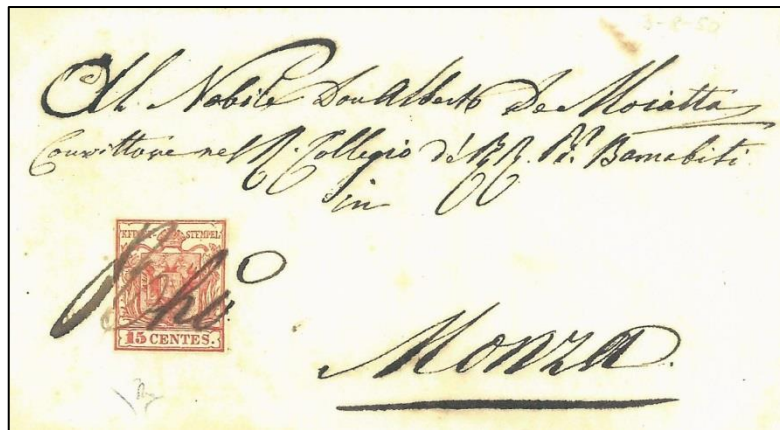 3-8-50
Al Nobile Don Alberto De Moiatta
Convittore nel R. Collegio de' RR. P.i Barnabiti
in
K.K.POST-STEMPEL
15 CENTES.
Monza